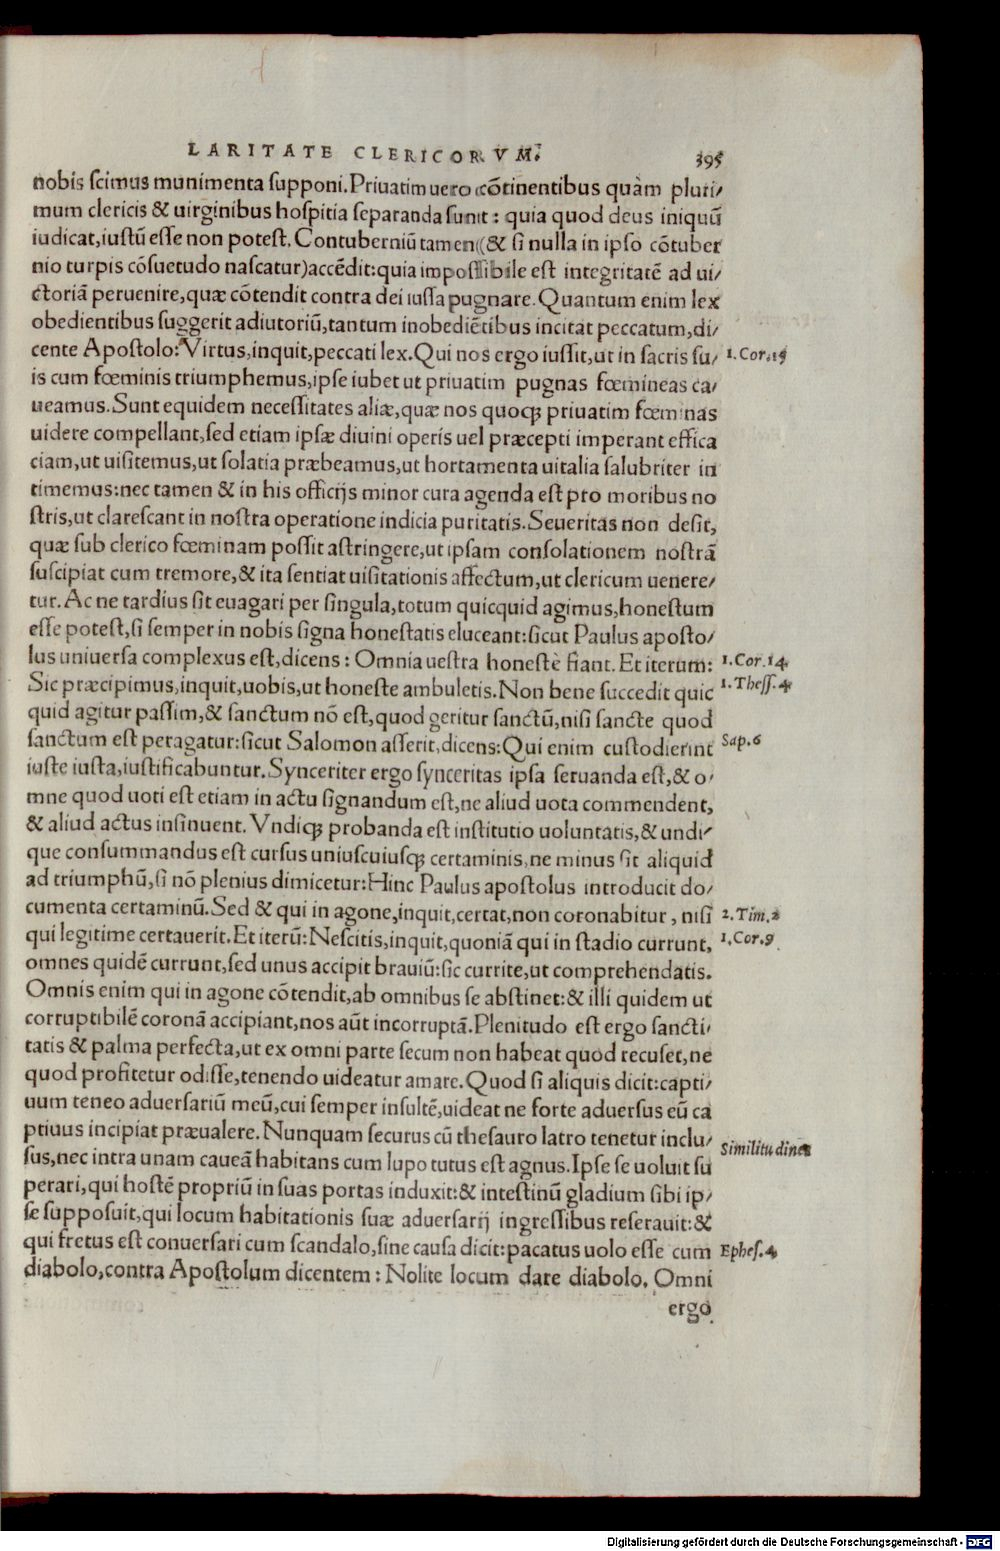 LARITATE CLERICORVM. 395
nobis ſcimus munimenta ſupponi. Priuatim uero cõtinentibus quàm pluri/
mum clericis & uirginibus hoſpitia ſeparanda ſunt: quia quod deus iniquũ
iudicat, iuſtũ eſſe non poteſt. Contuberniũ tamen (& ſi nulla in ipſo cõtuber
nio turpis cõſuetudo naſcatur) accẽdit: quia impoſſibile eſt integritatẽ ad ui/
ctoriã peruenire, quæ cõtendit contra dei iuſſa pugnare. Quantum enim lex
obedientibus ſuggerit adiutoriũ, tantum inobediẽtibus incitat peccatum, di/
cente Apoſtolo: Virtus, inquit, peccati lex. Qui nos ergo iuſſit, ut in ſacris ſu/ 1. Cor. 15
is cum fœminis triumphemus, ipſe iubet ut priuatim pugnas fœmineas ca/
ueamus. Sunt equidem neceſſitates aliæ, quæ nos quoqꝫ priuatim fœminas
uidere compellant, ſed etiam ipſæ diuini operis uel præcepti imperant effica
ciam, ut uiſitemus, ut ſolatia præbeamus, ut hortamenta uitalia ſalubriter in
timemus: nec tamen & in his officijs minor cura agenda eſt pro moribus no
ſtris, ut clareſcant in noſtra operatione indicia puritatis. Seueritas non deſit,
quæ ſub clerico fœminam poſſit aſtringere, ut ipſam conſolationem noſtrã
ſuſcipiat cum tremore, & ita ſentiat uiſitationis affectum, ut clericum uenere/
tur. Ac ne tardius ſit euagari per ſingula, totum quicquid agimus, honeſtum
eſſe poteſt, ſi ſemper in nobis ſigna honeſtatis eluceant: ſicut Paulus apoſto/
lus uniuerſa complexus eſt, dicens: Omnia ueſtra honeſtè fiant. Et iterum: 1. Cor. 14.
Sic præcipimus, inquit, uobis, ut honeſte ambuletis. Non bene ſuccedit quic 1. Theſſ. 4
quid agitur paſſim, & ſanctum nõ eſt, quod geritur ſanctũ, niſi ſancte quod
ſanctum eſt peragatur: ſicut Salomon aſſerit, dicens: Qui enim cuſtodierint Sap. 6
iuſte iuſta, iuſtificabuntur. Synceriter ergo ſynceritas ipſa ſeruanda eſt, & o/
mne quod uoti eſt etiam in actu ſignandum eſt, ne aliud uota commendent,
& aliud actus inſinuent. Vndiqꝫ probanda eſt inſtitutio uoluntatis, & undi/
que conſummandus eſt curſus uniuſcuiuſqꝫ certaminis, ne minus ſit aliquid
ad triumphũ, ſi nõ plenius dimicetur: Hinc Paulus apoſtolus introducit do/
cumenta certaminũ. Sed & qui in agone, inquit, certat, non coronabitur, niſi 2. Tim. 2
qui legitime certauerit. Et iterũ: Neſcitis, inquit, quoniã qui in ſtadio currunt, 1. Cor. 9.
omnes quidẽ currunt, ſed unus accipit brauiũ: ſic currite, ut comprehendatis.
Omnis enim qui in agone cõtendit, ab omnibus ſe abſtinet: & illi quidem ut
corruptibilẽ coronã accipiant, nos aũt incorruptã. Plenitudo eſt ergo ſancti/
tatis & palma perfecta, ut ex omni parte ſecum non habeat quod recuſet, ne
quod profitetur odiſſe, tenendo uideatur amare. Quod ſi aliquis dicit: capti/
uum teneo aduerſariũ meũ, cui ſemper inſultẽ, uideat ne forte aduerſus eũ ca
ptiuus incipiat præualere. Nunquam ſecurus cũ theſauro latro tenetur inclu/
ſus, nec intra unam caueã habitans cum lupo tutus eſt agnus. Ipſe ſe uoluit ſu Similitudines
perari, qui hoſtẽ propriũ in ſuas portas induxit: & inteſtinũ gladium ſibi ip/
ſe ſuppoſuit, qui locum habitationis ſuæ aduerſarij ingreſſibus reſerauit: &
qui fretus eſt conuerſari cum ſcandalo, ſine cauſa dicit: pacatus uolo eſſe cum Epheſ. 4
diabolo, contra Apoſtolum dicentem: Nolite locum dare diabolo. Omni
ergo
Digitalisierung gefördert durch die Deutsche Forschungsgemeinschaft - DFG